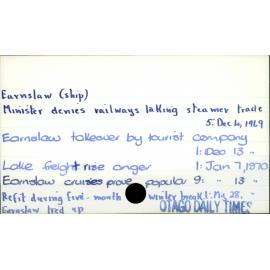 Earnslaw (ship)
Minister denies railways taking steamer trade
5. Dec 4, 1969
Earnslaw takeover by tourist company
1: Dec 13 "
Lake freight rise anger 1: Jan 7, 1970
Earnslaw cruises prove popular 9: " 13 "
Refit during five-month winter break 1: My 28, "
Earnslaw tied up
OTAGO DAILY TIMES